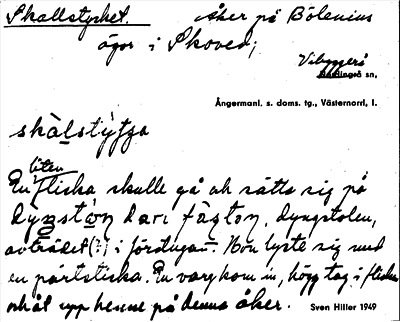 Skallstycket. Åker på Bölenius
ägor i Skoved;
Vibyggerå
Nordingrå sn,
Ångermanl. s. doms. tg., Västernorrl, l.
skàlstỳtja
liten
En flicka skulle gå ok sätta sig på
dyngstolen,
avträdet(?) i fördugan. Hon lyste sig med
en pärtsticka. En varg kom in, högg tag i flickan
ok åt upp henne på denna åker. Sven Hiller 1949